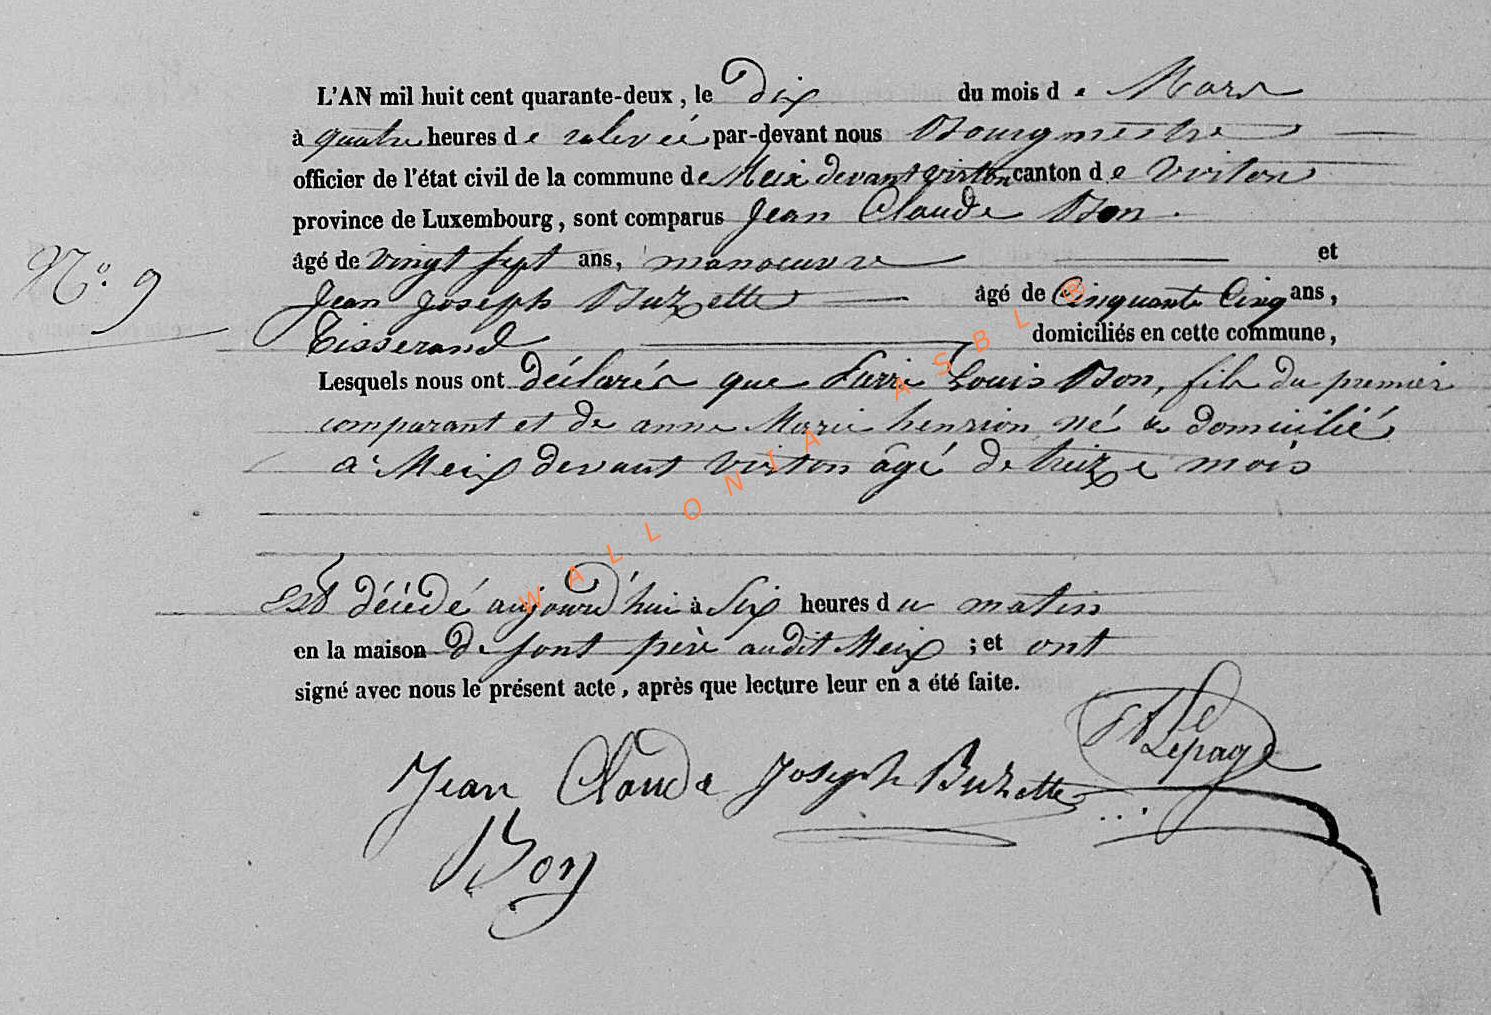 L'AN mil huit cent quarante-deux, le Dix du mois de Mars
à quatre heures de relevée par-devant nous Bourgmestre
officier de l'état civil de la commune de Meix devant virton canton de Virton
province de Luxembourg, sont comparus Jean Claude Bon
âgé de vingt sept ans, manoeuvre et
N° 9
Jean Joseph Buzette âgé de Cinquante Cinq ans,
Tisserand domiciliés en cette commune,
Lesquels nous ont déclarés que Louis Bon, fils du premier
comparant et de anne Marie henrion né & domicilié
à Meix devant virton âgé de treize mois
est décédé aujourd'hui à Six heures du matin
en la maison de sont père audit Meix ; et ont
signé avec nous le présent acte, après que lecture leur en a été faite.
Lepage
Jean Claude Joseph Buzette
Bon
WALLONIA ASBL ®